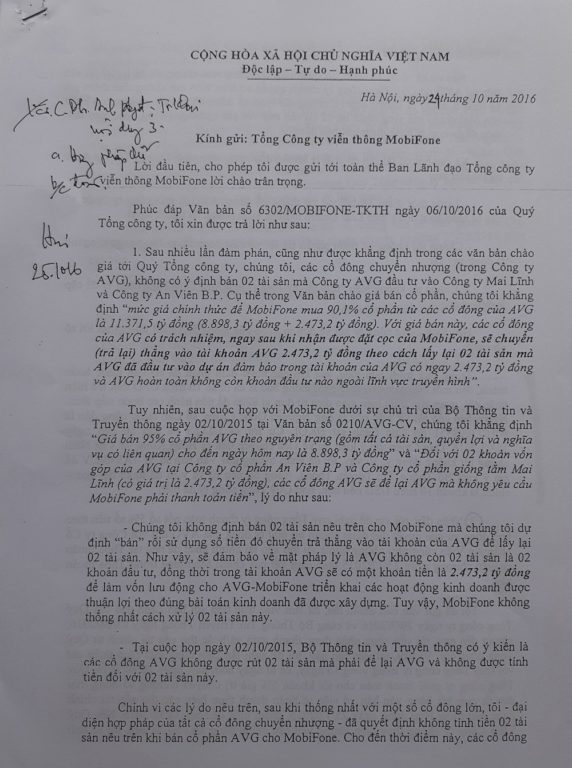 CỘNG HÒA XÃ HỘI CHỦ NGHĨA VIỆT NAM
Độc lập – Tự do – Hạnh phúc
Hà Nội, ngày 24 tháng 10 năm 2016
Kính gửi: Tổng Công ty viễn thông MobiFone
Lời đầu tiên, cho phép tôi được gửi tới toàn thể Ban Lãnh đạo Tổng công ty
viễn thông MobiFone lời chào trân trọng.
Phúc đáp Văn bản số 6302/MOBIFONE-TKTH ngày 06/10/2016 của Quý
Tổng công ty, tôi xin được trả lời như sau:
1. Sau nhiều lần đàm phán, cũng như được khẳng định trong các văn bản chào
giá tới Quý Tổng công ty, chúng tôi, các cổ đông chuyển nhượng (trong Công ty
AVG), không có ý định bán 02 tài sản mà Công ty AVG đầu tư vào Công ty Mai Lĩnh
và Công ty An Viên B.P. Cụ thể trong Văn bản chào giá bán cổ phần, chúng tôi khẳng
định “mức giá chính thức để MobiFone mua 90,1% cổ phần từ các cổ đông của AVG
là 11.371,5 tỷ đồng (8.898,3 tỷ đồng + 2.473,2 tỷ đồng). Với giá bán này, các cổ đông
của AVG có trách nhiệm, ngay sau khi nhận được đặt cọc của MobiFone, sẽ chuyển
(trả lại) thẳng vào tài khoản AVG 2.473,2 tỷ đồng theo cách lấy lại 02 tài sản mà
AVG đã đầu tư vào dự án đảm bảo trong tài khoản của AVG có ngay 2.473,2 tỷ đồng
và AVG hoàn toàn không còn khoản đầu tư nào ngoài lĩnh vực truyền hình”.
Tuy nhiên, sau cuộc họp với MobiFone dưới sự chủ trì của Bộ Thông tin và
Truyền thông ngày 02/10/2015 tại Văn bản số 0210/AVG-CV, chúng tôi khẳng định
“Giá bán 95% cổ phần AVG theo nguyên trạng (gồm tất cả tài sản, quyền lợi và nghĩa
vụ có liên quan) cho đến ngày hôm nay là 8.898,3 tỷ đồng” và “Đối với 02 khoản vốn
góp của AVG tại Công ty Cổ phần An Viên B.P và Công ty cổ phần giống tằm Mai
Lĩnh (có giá trị là 2.473,2 tỷ đồng), các cổ đông AVG sẽ để lại AVG mà không yêu cầu
MobiFone phải thanh toán tiền”, lý do như sau:
- Chúng tôi không định bán 02 tài sản nêu trên cho MobiFone mà chúng tôi dự
định “bán” rồi sử dụng số tiền đó chuyển trả thẳng vào tài khoản của AVG để lấy lại
02 tài sản. Như vậy, sẽ đảm bảo về mặt pháp lý là AVG không còn 02 tài sản là 02
khoản đầu tư, đồng thời trong tài khoản AVG sẽ có một khoản tiền là 2.473,2 tỷ đồng
để làm vốn lưu động cho AVG-MobiFone triển khai các hoạt động kinh doanh được
thuận lợi theo đúng bài toán kinh doanh đã được xây dựng. Tuy vậy, MobiFone không
thống nhất cách xử lý 02 tài sản này.
- Tại cuộc họp ngày 02/10/2015, Bộ Thông tin và Truyền thông có ý kiến là
các cổ đông AVG không được rút 02 tài sản mà phải để lại AVG và không được tính
tiền đối với 02 tài sản này.
Chính vì các lý do nêu trên, sau khi thống nhất với một số cổ đông lớn, tôi - đại
diện hợp pháp của tất cả cổ đông chuyển nhượng - đã quyết định không tính tiền 02
tài sản nêu trên khi bán cổ phần AVG cho MobiFone. Cho đến thời điểm này, các cổ đông